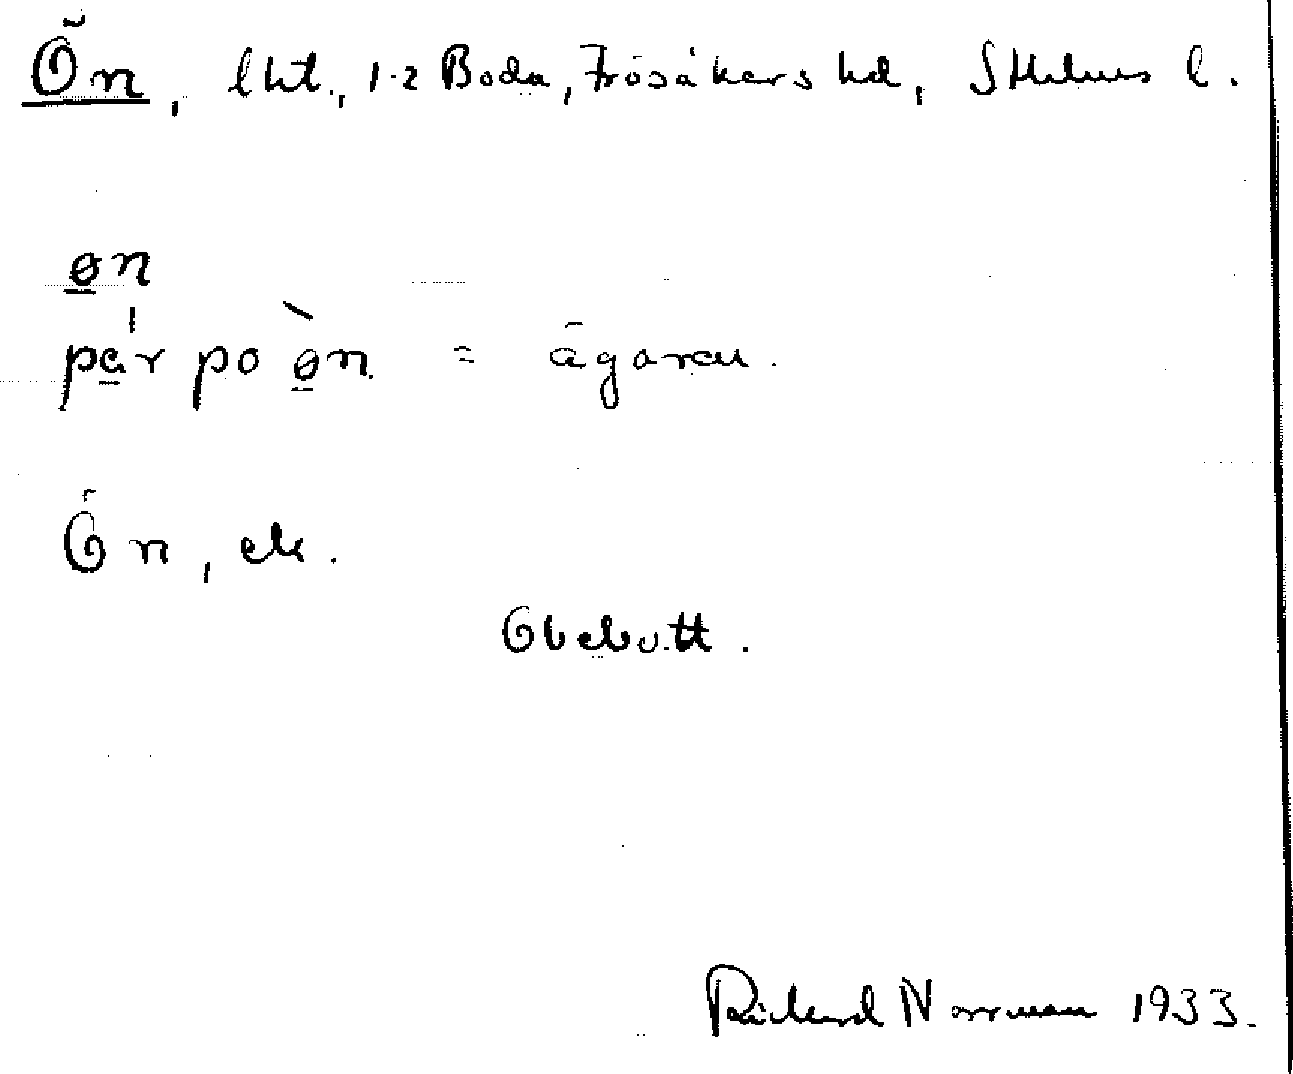 Ön, lht., 1-2 Boda, Frösåkers hd, Sthlms l.
øn
pär po øn = ägaren.
Ön, ek.
Obebott.
Richard Norrman 1933.